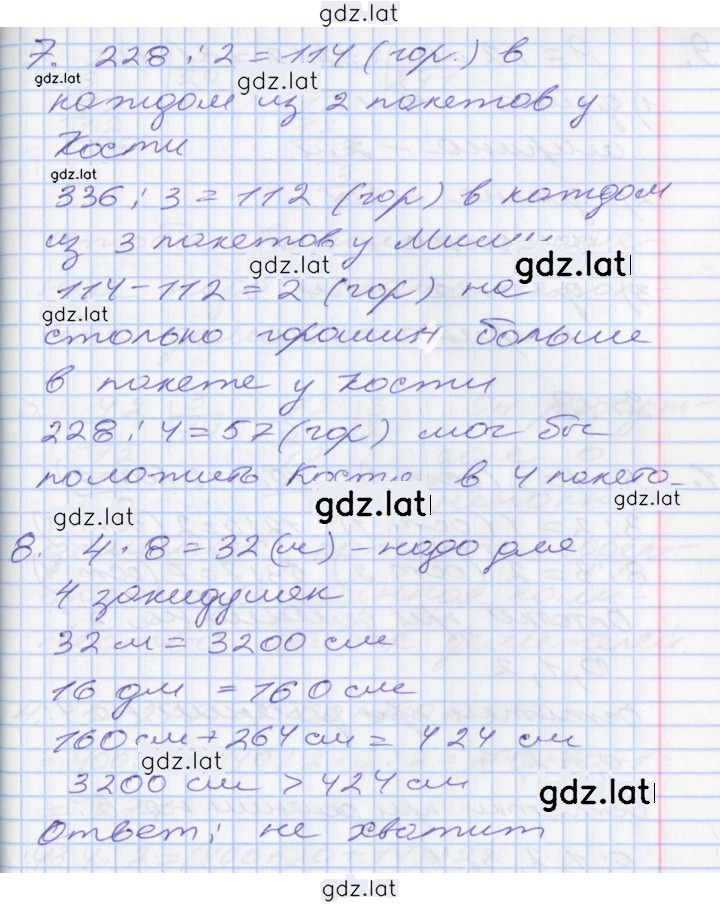 gdz.lat
7. 228 : 2 = 114 (гор.) в
gdz.lat
gdz.lat
каждом из 2 пакетов у
Кости
gdz.lat
336 : 3 = 112 (гор) в каждом
из 3 пакетов у Миши
gdz.lat
gdz.lat
114 - 112 = 2 (гор) на
gdz.lat
столько горошин больше
в пакете у Кости
228 : 4 = 57 (гор) мог бы
положить Костя в 4 пакета
gdz.lat
gdz.lat
gdz.lat
8. 4 · 8 = 32 (м) - надо для
4 закидушек
32 м = 3200 см
16 дм = 160 см
160 см + 264 см = 424 см
gdz.lat
3200 см > 424 см
gdz.lat
Ответ: не хватит
gdz.lat